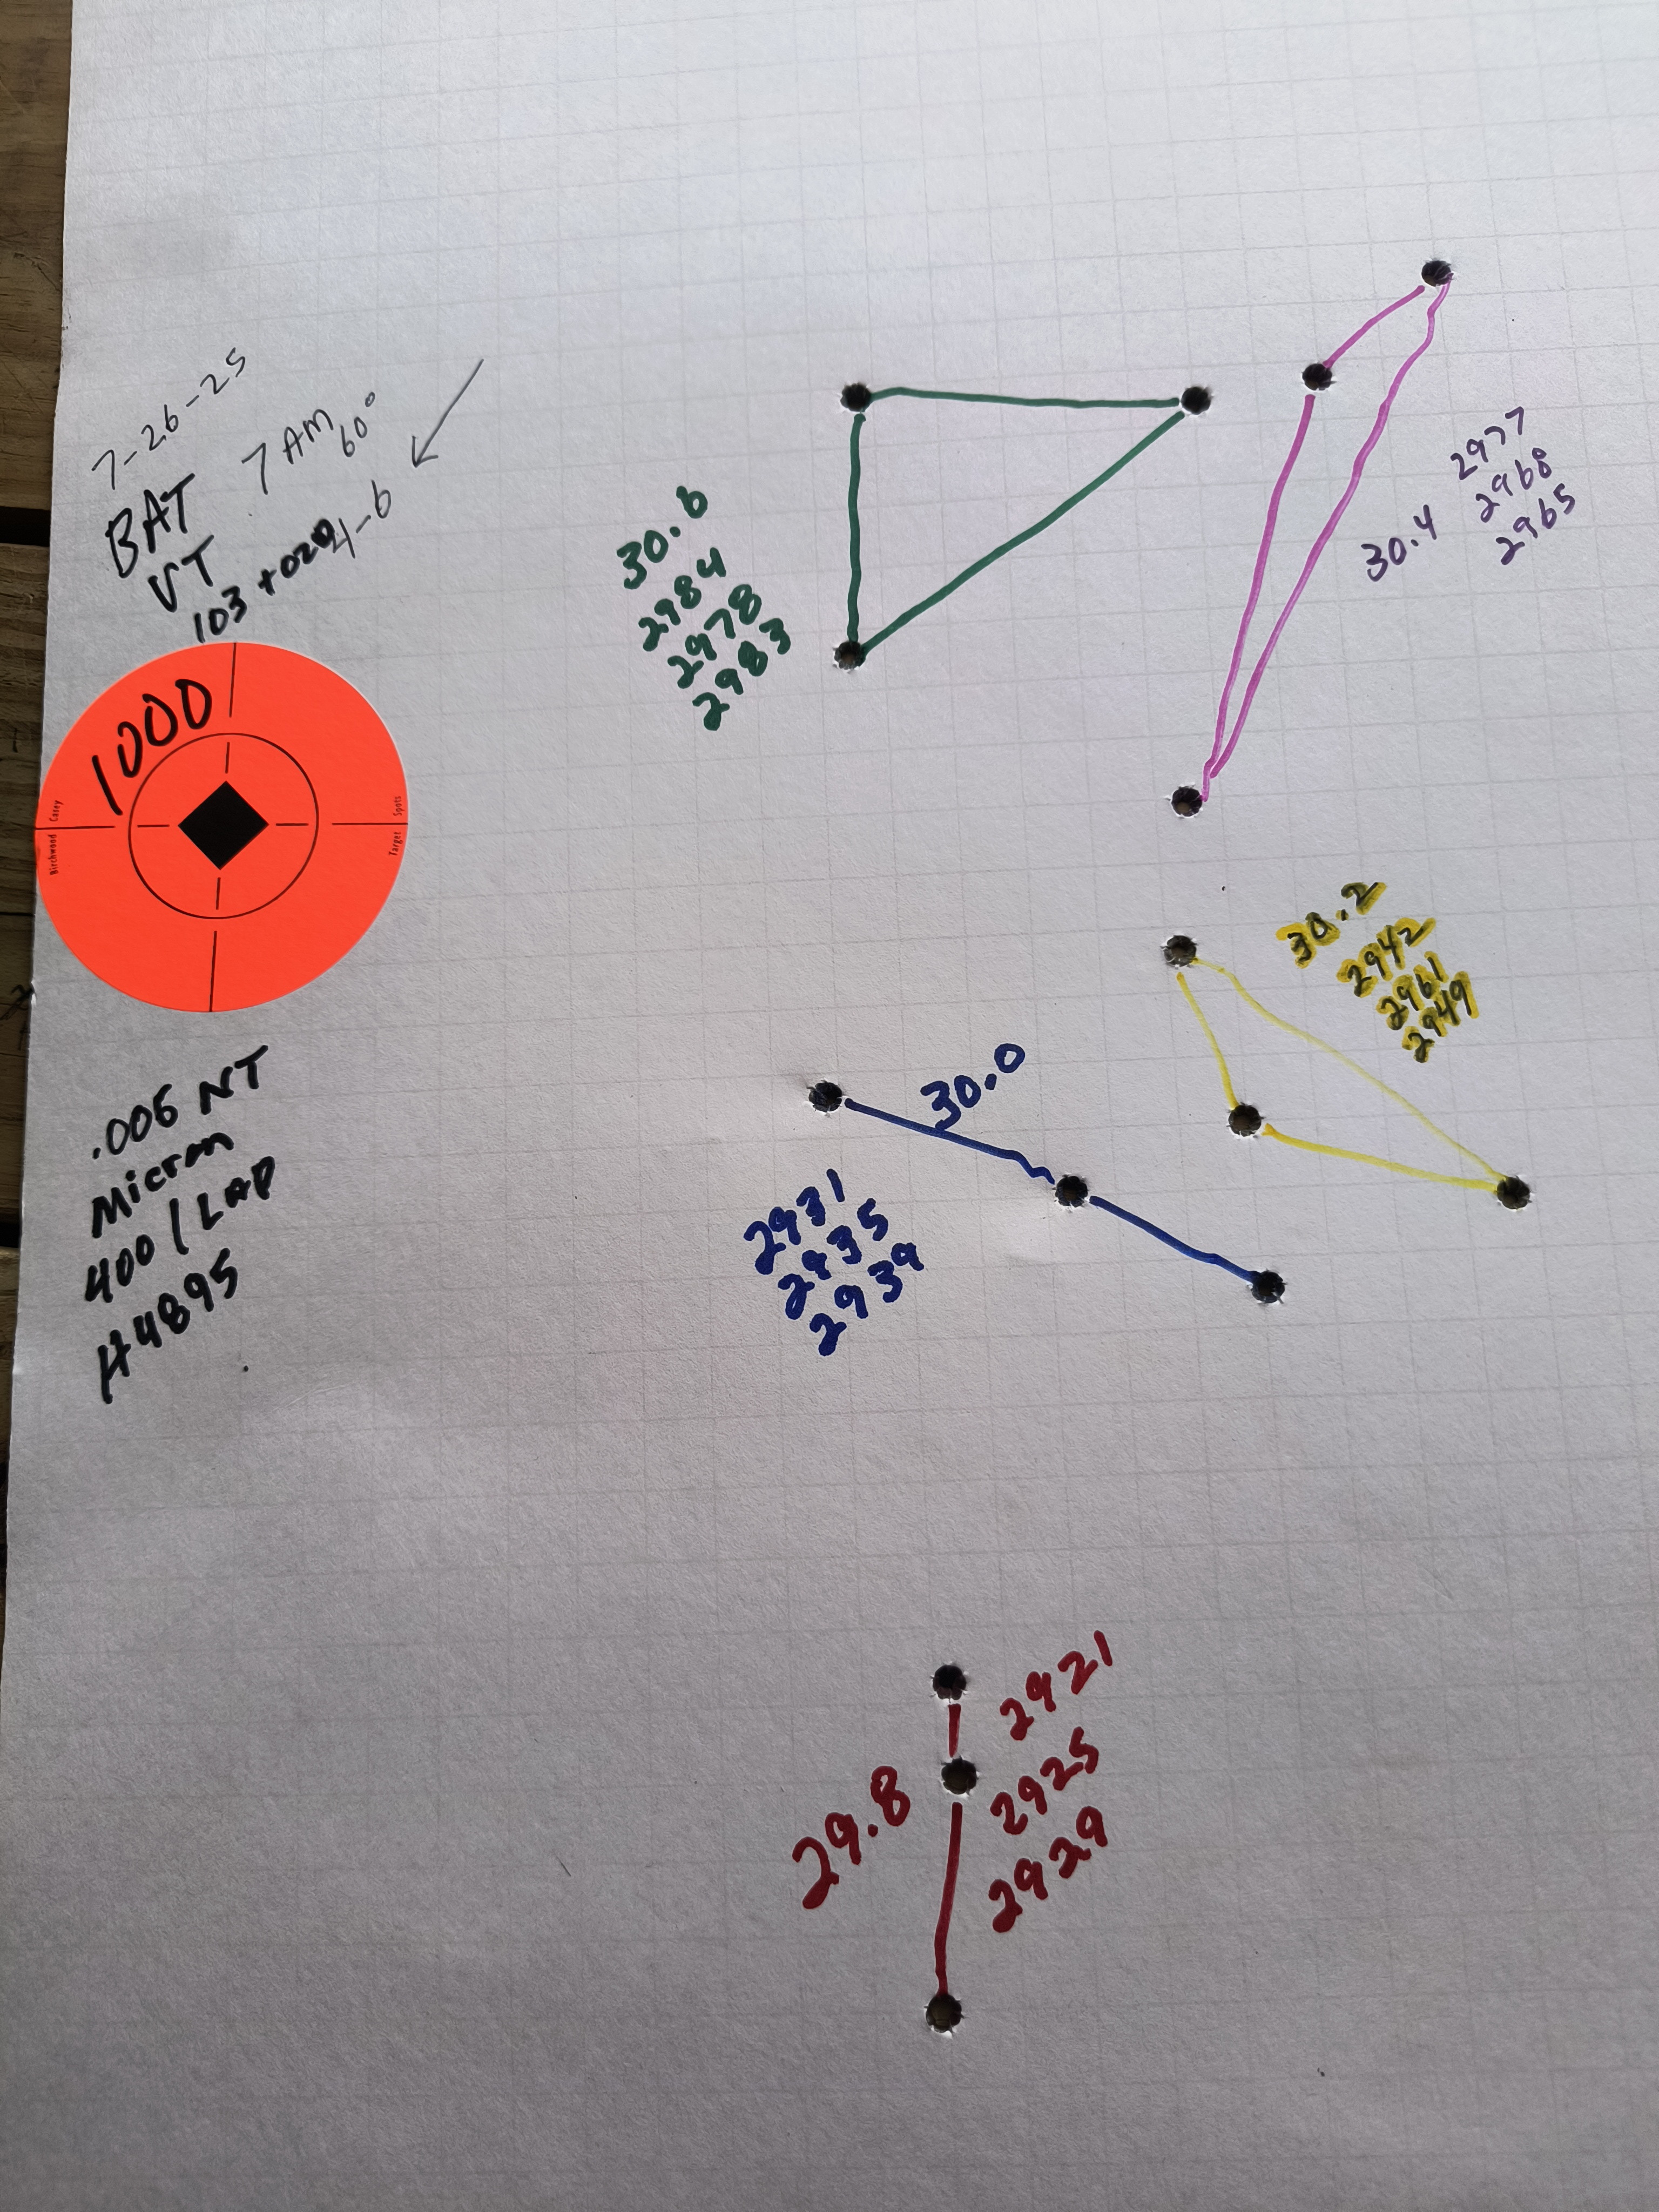 7-26-25
BAT 7 AM 60°
VT
4-6
1000
Birchwood Casey
Target Spots
.006 NT
Micron
400 / LAP
H4895
30.6
2984
2978
2983
2977
2968
30.4 2965
30.2
2942
2961
2949
30.0
2931
2935
2939
29.8
2921
2925
2929